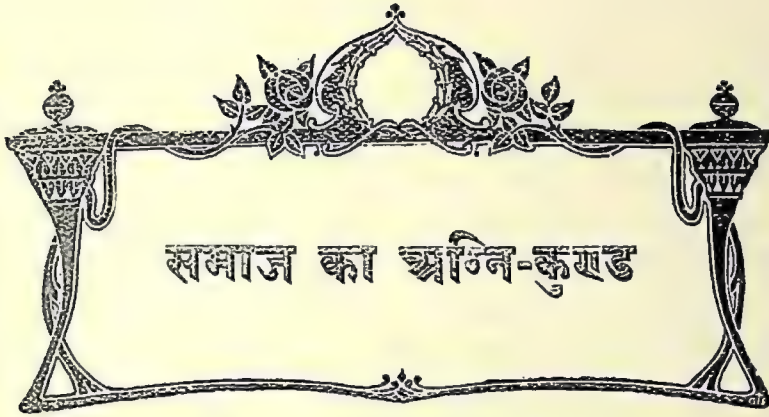 समाज का अग्नि-कुण्ड